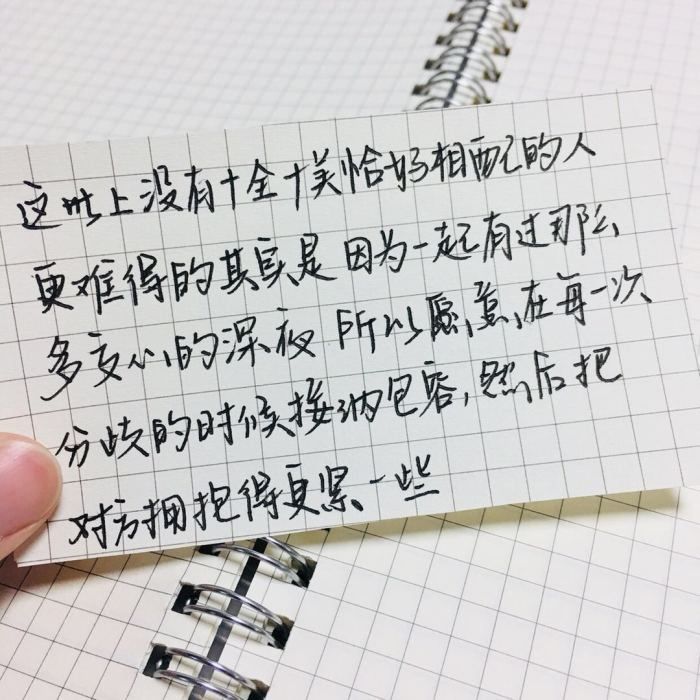 这世上没有十全十美恰好相配的人
更难得的其实是因为一起有过那么
多交心的深夜 所以愿意在每一次
分歧的时候接纳包容,然后把
对方拥抱得更紧一些